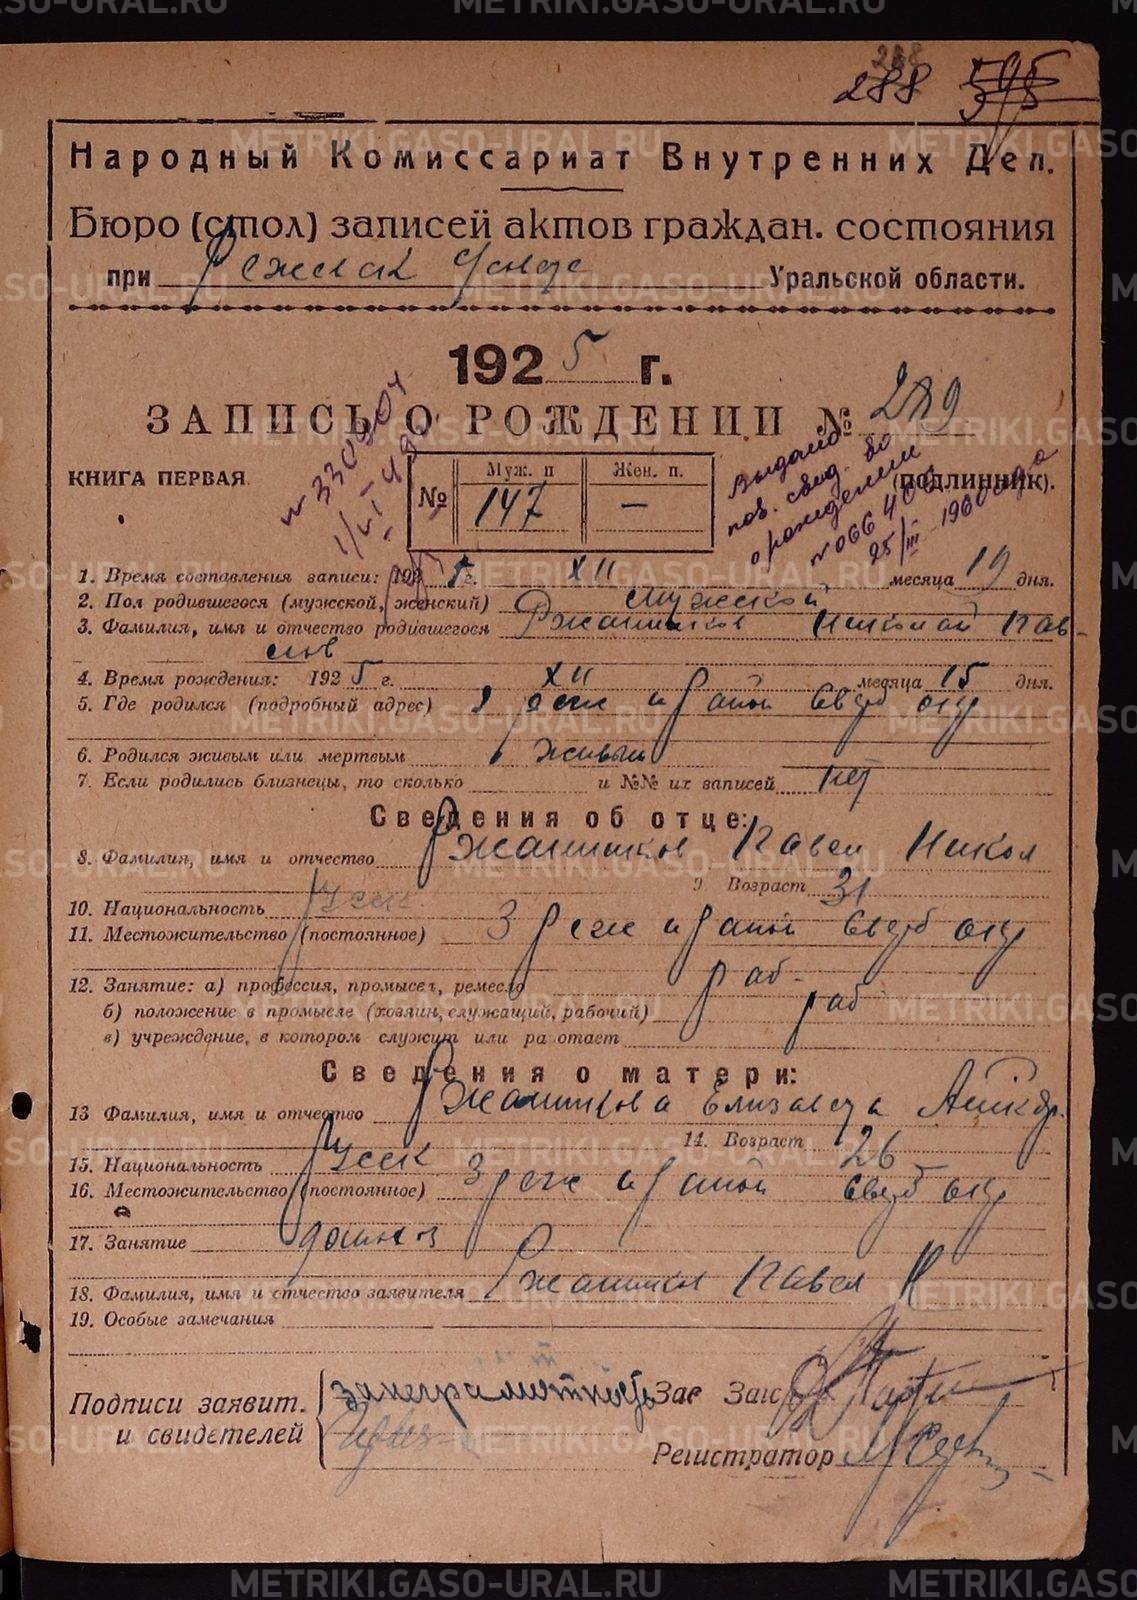 288
288 595
Народный Комиссариат Внутренних Дел.
Бюро (стол) записей актов граждан. состояния
при Режевск Уральской области.
1925 г.
ЗАПИСЬ О РОЖДЕНИИ № 289
КНИГА ПЕРВАЯ (подлинник).
№ Муж. п Жен. п.
147 —
Выдано
пов. свид. во
о рождении
25/III 1960 года
1. Время составления записи: 1925 г. XII месяца 19 дня.
2. Пол родившегося (мужской, женский) мужской
3. Фамилия, имя и отчество родившегося Ржанников Николай Пав-
лов
4. Время рождения: 1925 г. XII месяца 15 дня.
5. Где родился (подробный адрес) Реж и район Сверд окр
6. Родился живым или мертвым живым
7. Если родились близнецы, то сколько и №№ их записей нет
Сведения об отце:
8. Фамилия, имя и отчество Ржанников Павел Никол
9 Возраст 31
10. Национальность Русск
11. Местожительство (постоянное) З Реж и район Сверд окр
12. Занятие: а) профессия, промысел, ремесло раб-
б) положение в промысле (хозяин, служащий, рабочий) раб
в) учреждение, в котором служит или ра отает
Сведения о матери:
13 Фамилия, имя и отчество Ржанникова Елизавета
14. Возраст 26
15. Национальность Русск
16. Местожительство (постоянное) З Реж и район Сверд окр
17. Занятие домохоз
18. Фамилия, имя и отчество заявителя Ржанников Павел Н
19. Особые замечания
Подписи заявит.
и свидетелей
Зав Загс
Регистратор
METRIKI.GASO-URAL.RU